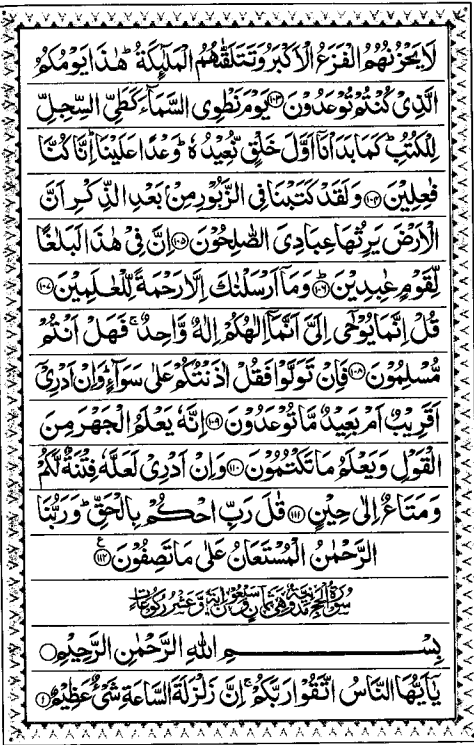 لَا يَحْزُنُهُمُ الْفَزَعُ الْاَكْبَرُ وَتَتَلَقّٰهُمُ الْمَلٰٓئِكَةُ ؕ هٰذَا يَوْمُكُمُ
الَّذِیْ كُنْتُمْ تُوْعَدُوْنَ ﴿۱۰۳﴾ يَوْمَ نَطْوِی السَّمَآءَ كَطَیِّ السِّجِلِّ
لِلْكُتُبِ ؕ كَمَا بَدَاْنَاۤ اَوَّلَ خَلْقٍ نُّعِيْدُهٗ ؕ وَعْدًا عَلَيْنَا ؕ اِنَّا كُنَّا
فٰعِلِيْنَ ﴿۱۰۴﴾ وَلَقَدْ كَتَبْنَا فِی الزَّبُوْرِ مِنْۢ بَعْدِ الذِّكْرِ اَنَّ
الْاَرْضَ يَرِثُهَا عِبَادِیَ الصّٰلِحُوْنَ ﴿۱۰۵﴾ اِنَّ فِیْ هٰذَا لَبَلٰغًا
لِّقَوْمٍ عٰبِدِيْنَ ﴿۱۰۶﴾ وَمَاۤ اَرْسَلْنٰكَ اِلَّا رَحْمَةً لِّلْعٰلَمِيْنَ ﴿۱۰۷﴾
قُلْ اِنَّمَا يُوْحٰۤی اِلَیَّ اَنَّمَاۤ اِلٰهُكُمْ اِلٰهٌ وَّاحِدٌ ۚ فَهَلْ اَنْتُمْ
مُّسْلِمُوْنَ ﴿۱۰۸﴾ فَاِنْ تَوَلَّوْا فَقُلْ اٰذَنْتُكُمْ عَلٰی سَوَآءٍ ؕ وَاِنْ اَدْرِیْۤ
اَقَرِيْبٌ اَمْ بَعِيْدٌ مَّا تُوْعَدُوْنَ ﴿۱۰۹﴾ اِنَّهٗ يَعْلَمُ الْجَهْرَ مِنَ
الْقَوْلِ وَيَعْلَمُ مَا تَكْتُمُوْنَ ﴿۱۱۰﴾ وَاِنْ اَدْرِیْ لَعَلَّهٗ فِتْنَةٌ لَّكُمْ
وَمَتَاعٌ اِلٰی حِيْنٍ ﴿۱۱۱﴾ قٰلَ رَبِّ احْكُمْ بِالْحَقِّ ؕ وَرَبُّنَا
الرَّحْمٰنُ الْمُسْتَعَانُ عَلٰی مَا تَصِفُوْنَ ﴿۱۱۲﴾ ع
سُوْرَةُ الْحَجِّ مَدَنِيَّةٌ وَّهِیَ ثَمَانٌ وَّسَبْعُوْنَ اٰيَةً وَّعَشْرُ رُكُوْعَاتٍ
بِسْمِ اللّٰهِ الرَّحْمٰنِ الرَّحِيْمِ
يٰۤاَيُّهَا النَّاسُ اتَّقُوْا رَبَّكُمْ ۚ اِنَّ زَلْزَلَةَ السَّاعَةِ شَیْءٌ عَظِيْمٌ ﴿۱﴾